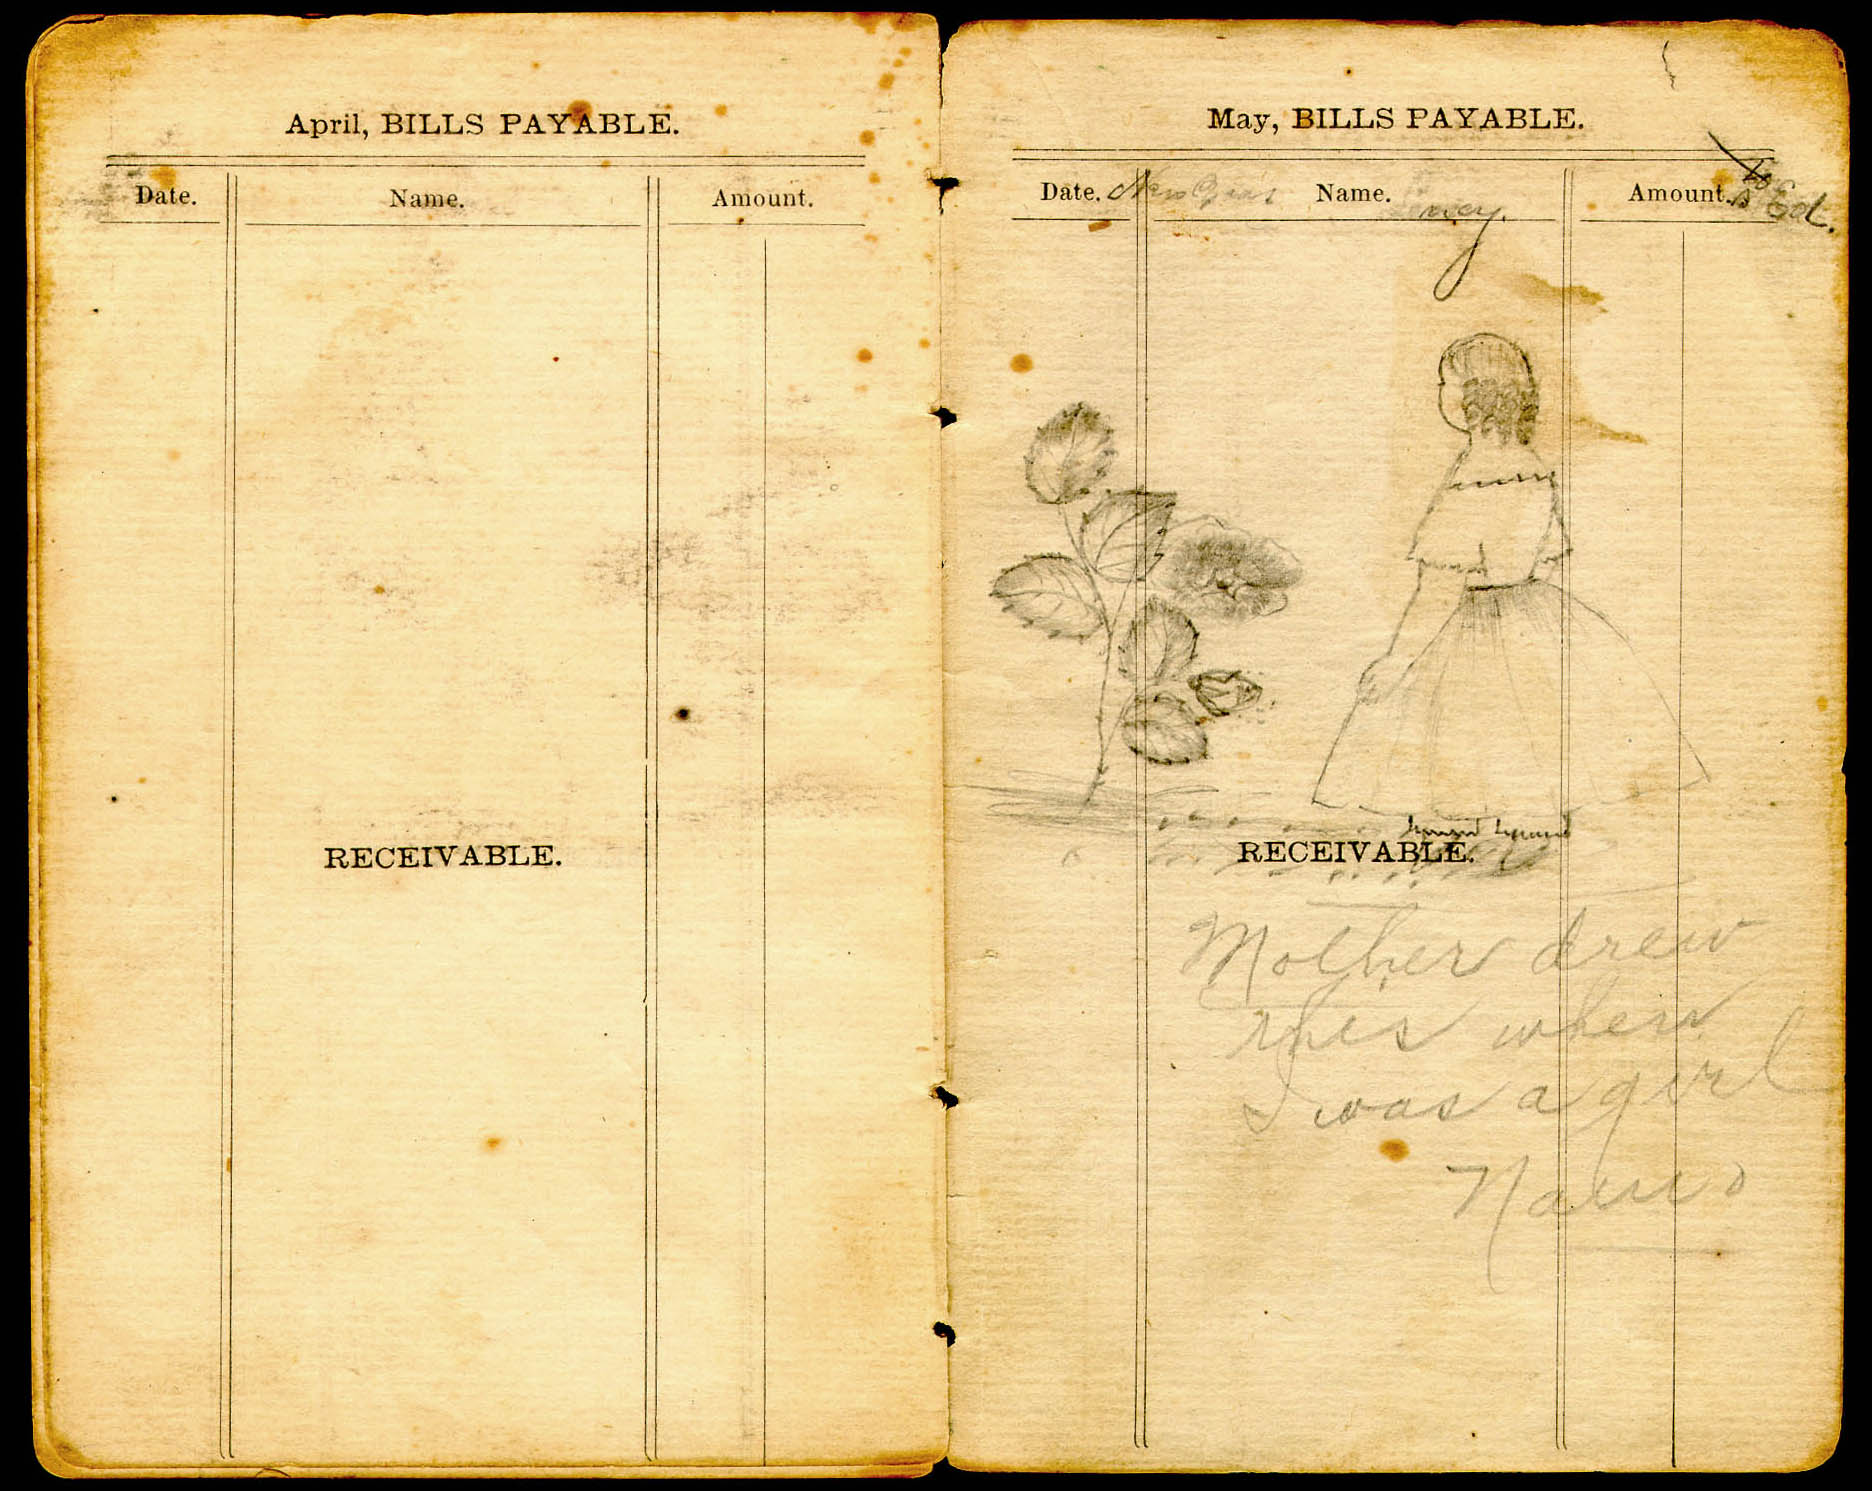 April, BILLS PAYABLE.
Date. Name. Amount.
RECEIVABLE.
May, BILLS PAYABLE.
Date. Name. Amount.
to Ed.
RECEIVABLE.
Mother drew
this when
I was a girl